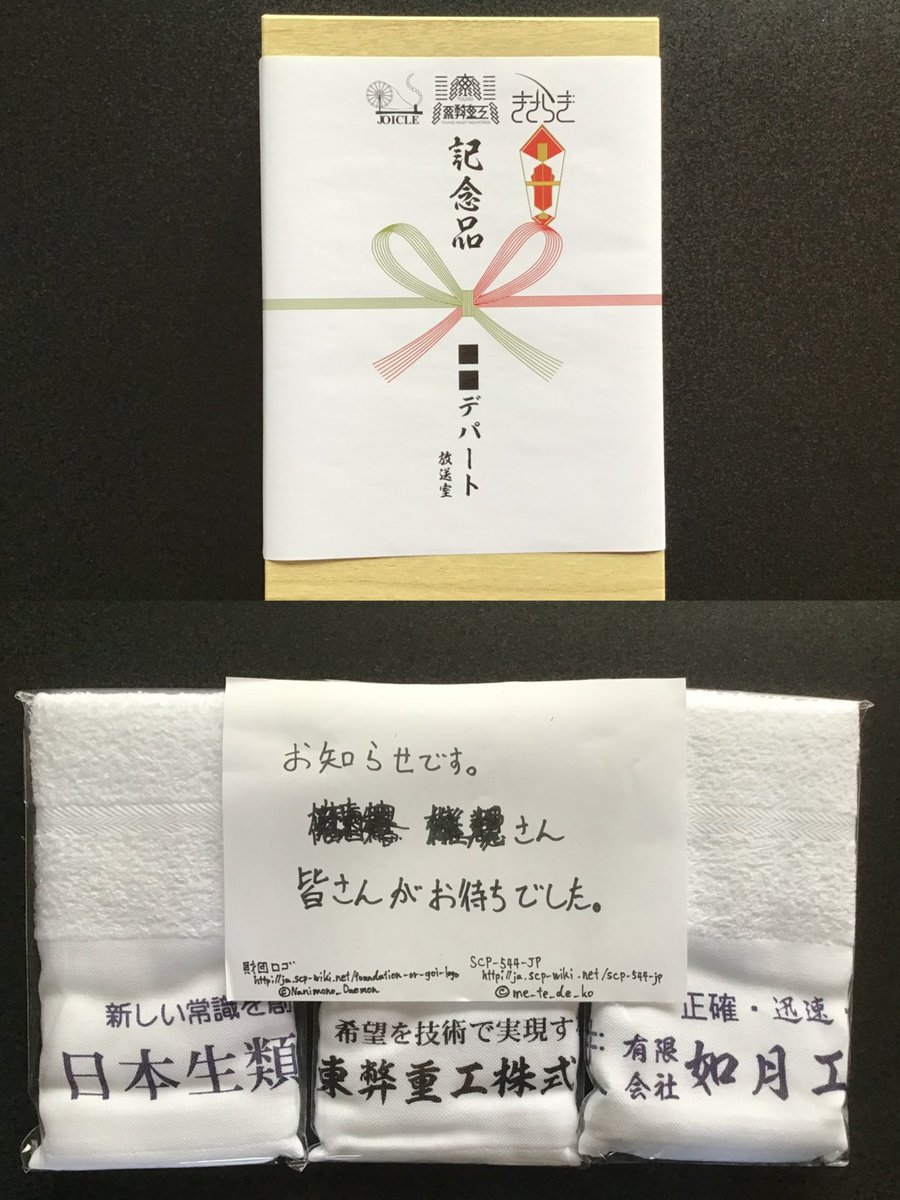 JOICLE
TOUHEI
東弊重工
TOUHEI HEAVY INDUSTRIES
きさらぎ
記念品
■■デパート
放送室
お知らせです。
さん
皆さんがお待ちでした。
財団ロゴ
http://ja.scp-wiki.net/foundation-or-goi-logo
©Nanimono_Daemon
SCP-544-JP
http://ja.scp-wiki.net/scp-544-jp
©me_te_de_ko
新しい常識を創
日本生類
希望を技術で実現す
東弊重工株式
正確・迅速
有限
会社
如月工